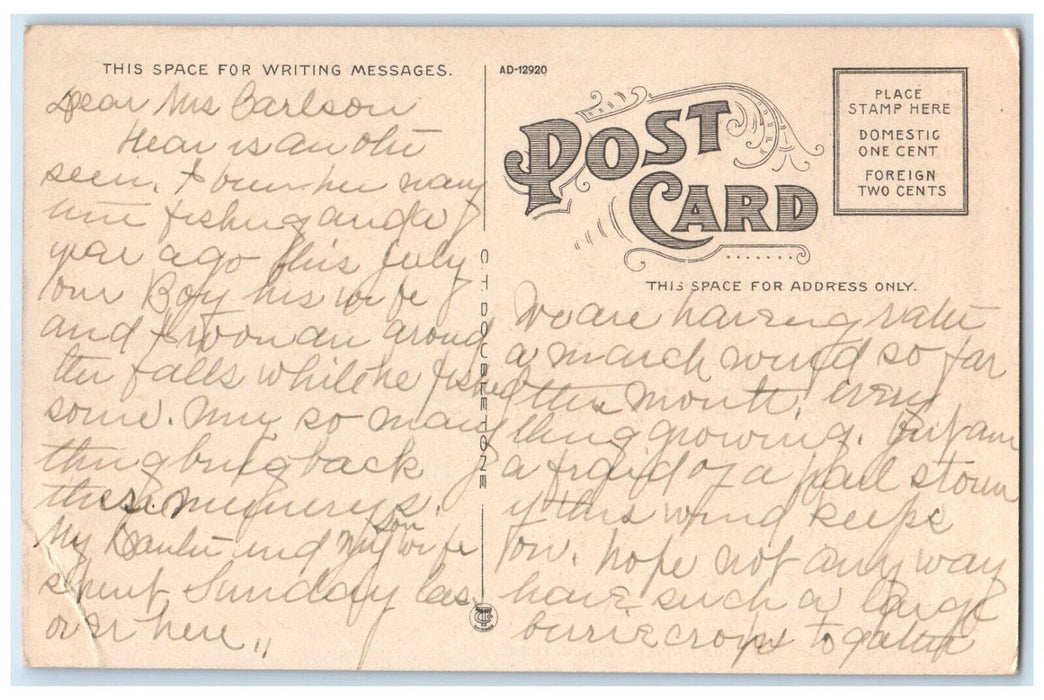 THIS SPACE FOR WRITING MESSAGES.
Dear Mrs Carlson
Hear is an othe
seen. I been her many
time fishing and a
year ago this July
our Boy his wife
and I woon an around
the falls while he fished
some. My so many
thing bring back
these memerys.
My and my son wife
spent Sunday las
over here
AD-12920
POST CARD
PLACE
STAMP HERE
DOMESTIC
ONE CENT
FOREIGN
TWO CENTS
C T DOUBLETONE
THIS SPACE FOR ADDRESS ONLY.
We are having rather
a march wind so far
this month. every
thing growing. But am
a fraid of a hail storm
if this wind keeps
on. hope not any way
have such a large
berrie crops to gather